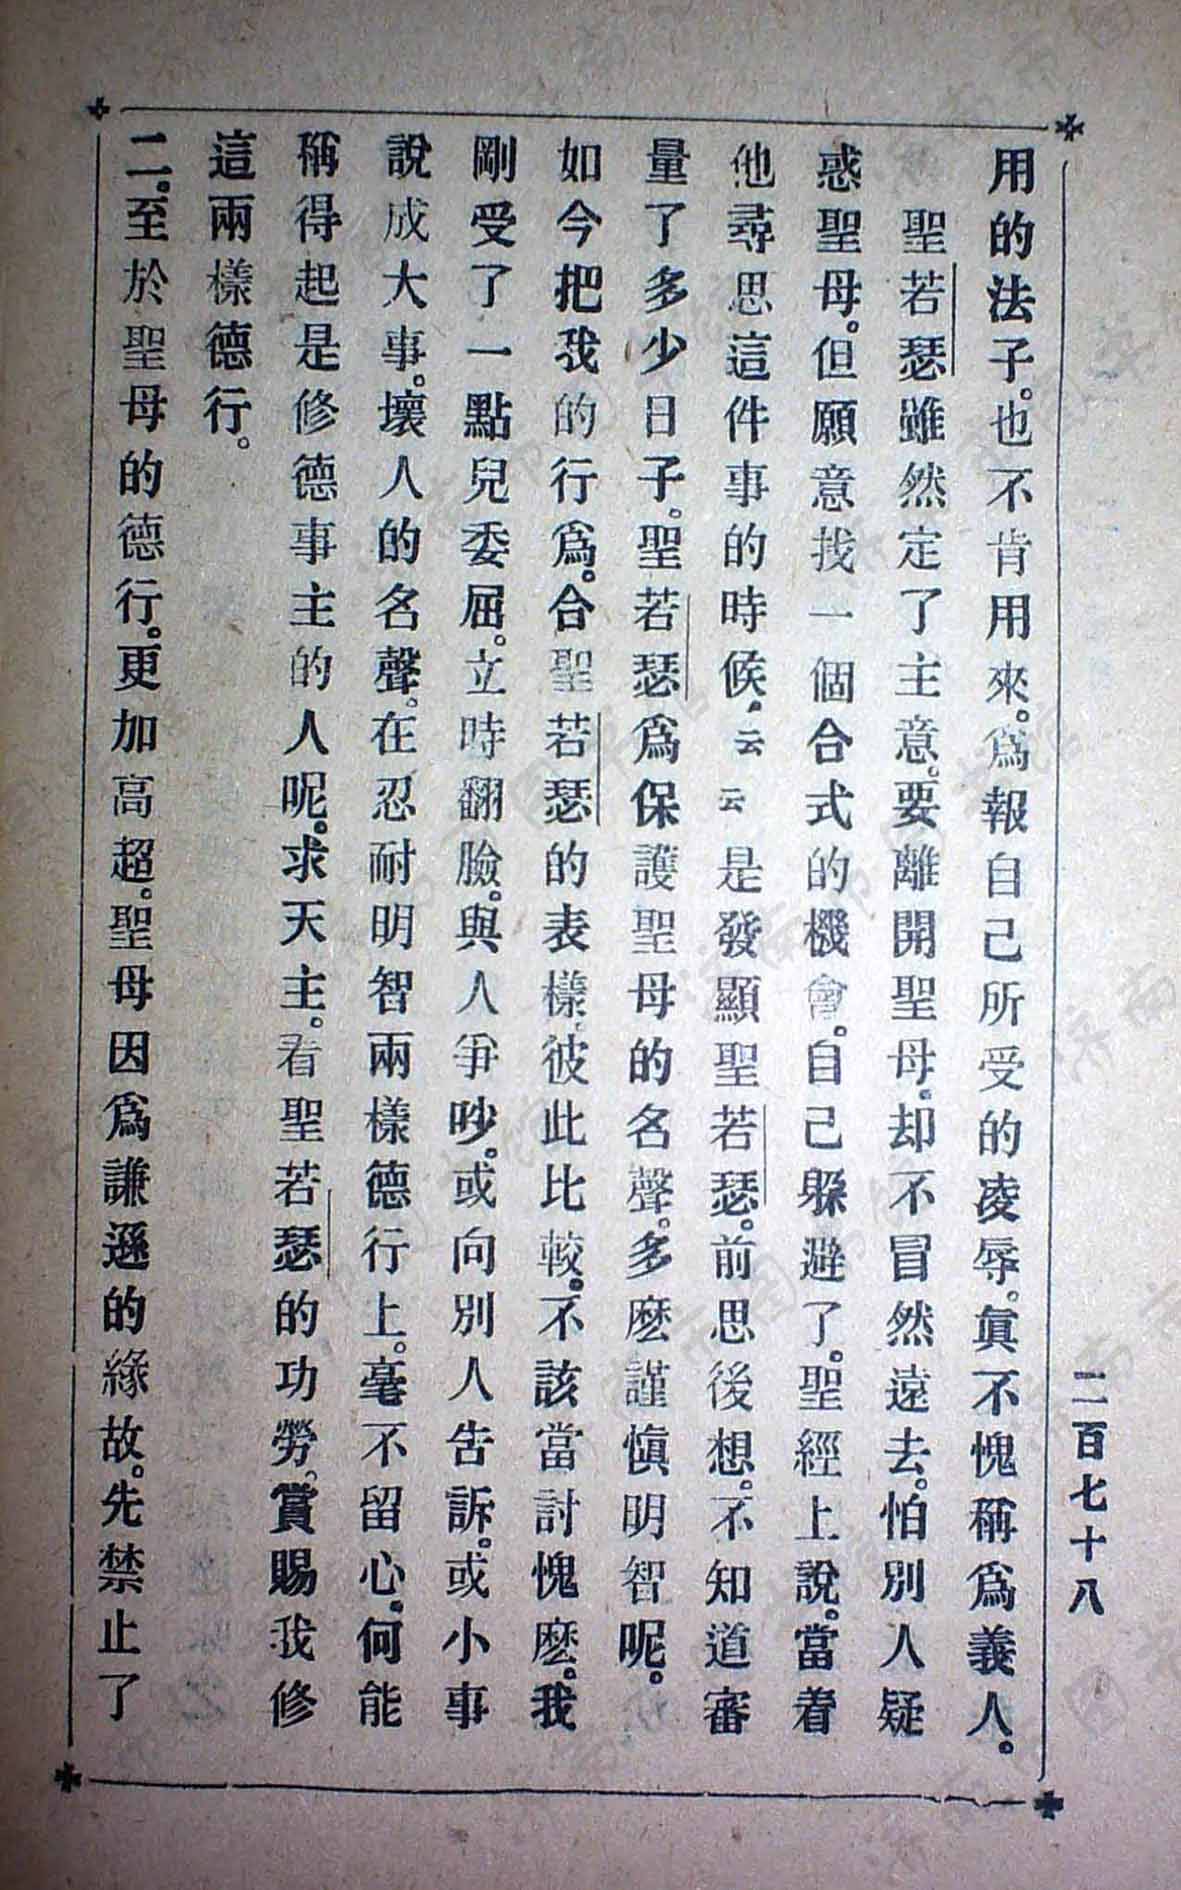 用的法子。也不肯用來。爲報自己所受的凌辱。眞不愧稱爲義人。
聖若瑟雖然定了主意。要離開聖母。却不冒然遠去。怕別人疑
惑聖母。但願意找一個合式的機會。自己躲避了。聖經上說。當着
他尋思這件事的時候。云云是發顯聖若瑟。前思後想。不知道審
量了多少日子。聖若瑟爲保護聖母的名聲。多麽謹愼明智呢。
如今把我的行爲。合聖若瑟的表樣。彼此比較。不該當討愧麽。我
剛受了一點兒委屈。立時翻臉。與人爭吵。或向別人告訴。或小事
說成大事。壞人的名聲。在忍耐明智兩樣德行上。毫不留心。何能
稱得起是修德事主的人呢。求天主。看聖若瑟的功勞。賞賜我修
這兩樣德行。
二。至於聖母的德行。更加高超。聖母因爲謙遜的緣故。先禁止了
二百七十八